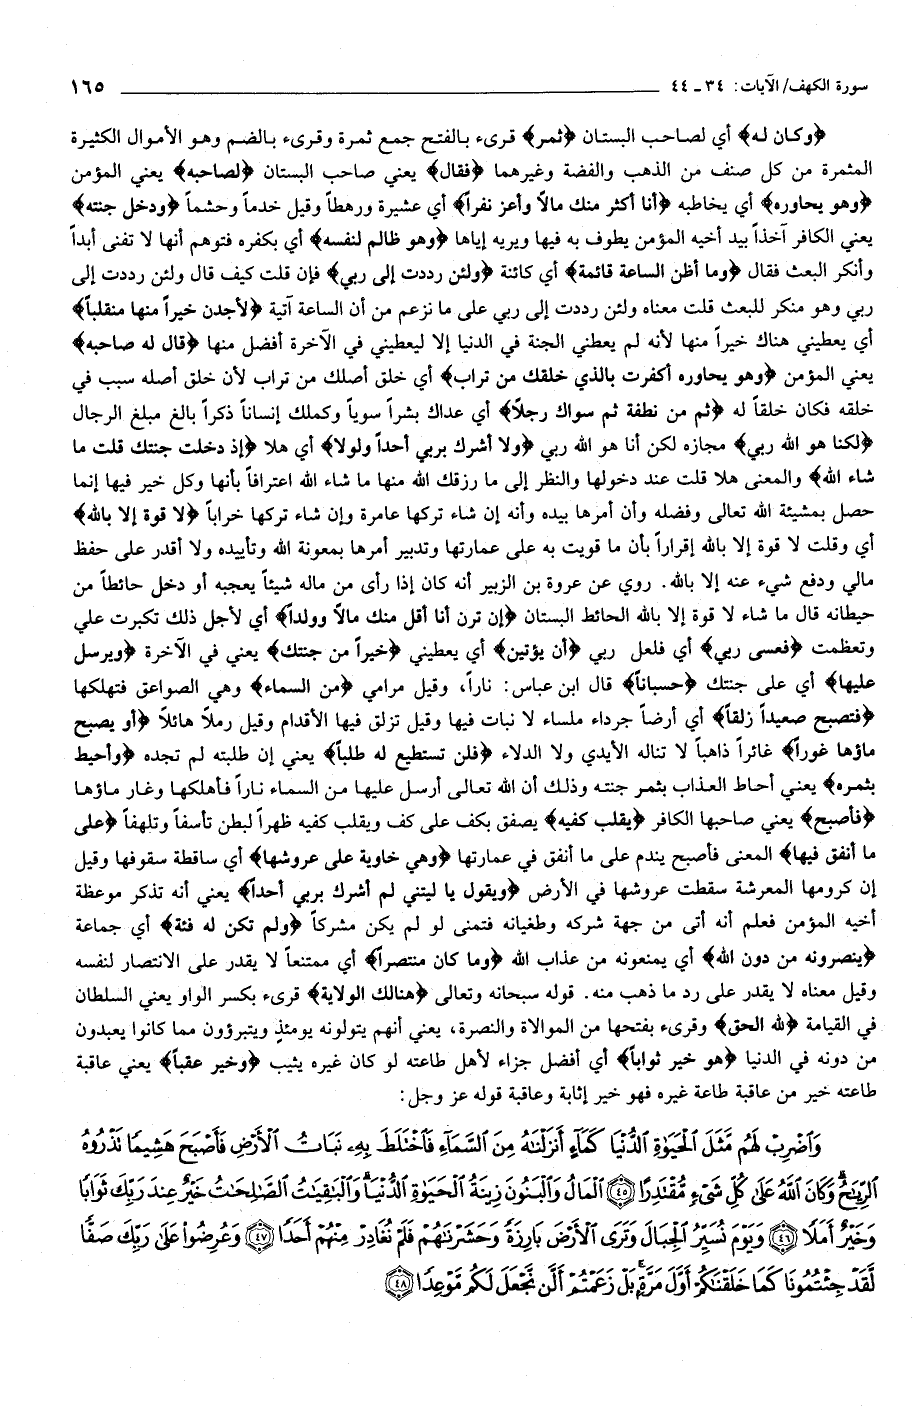 سورة الكهف/ الآيات: ٣٤ ـ ٤٤ ١٦٥
﴿وكان له﴾ أي لصاحب البستان ﴿ثمر﴾ قرىء بالفتح جمع ثمرة وقرىء بالضم وهو الأموال الكثيرة
المثمرة من كل صنف من الذهب والفضة وغيرهما ﴿فقال﴾ يعني صاحب البستان ﴿لصاحبه﴾ يعني المؤمن
﴿وهو يحاوره﴾ أي يخاطبه ﴿أنا أكثر منك مالاً وأعز نفراً﴾ أي عشيرة ورهطاً وقيل خدماً وحشماً ﴿ودخل جنته﴾
يعني الكافر آخذاً بيد أخيه المؤمن يطوف به فيها ويريه إياها ﴿وهو ظالم لنفسه﴾ أي بكفره فتوهم أنها لا تفنى أبداً
وأنكر البعث فقال ﴿وما أظن الساعة قائمة﴾ أي كائنة ﴿ولئن رددت إلى ربي﴾ فإن قلت كيف قال ولئن رددت إلى
ربي وهو منكر للبعث قلت معناه ولئن رددت إلى ربي على ما نزعم من أن الساعة آتية ﴿لأجدن خيراً منها منقلباً﴾
أي يعطيني هناك خيراً منها لأنه لم يعطني الجنة في الدنيا إلا ليعطيني في الآخرة أفضل منها ﴿قال له صاحبه﴾
يعني المؤمن ﴿وهو يحاوره أكفرت بالذي خلقك من تراب﴾ أي خلق أصلك من تراب لأن خلق أصله سبب في
خلقه فكان خلقاً له ﴿ثم من نطفة ثم سواك رجلاً﴾ أي عدلك بشراً سوياً وكملك إنساناً ذكراً بالغ مبلغ الرجال
﴿لكنا هو الله ربي﴾ مجازه لكن أنا هو الله ربي ﴿ولا أشرك بربي أحداً ولولا﴾ أي هلا ﴿إذ دخلت جنتك قلت ما
شاء الله﴾ والمعنى هلا قلت عند دخولها والنظر إلى ما رزقك الله منها ما شاء الله اعترافاً بأنها وكل خير فيها إنما
حصل بمشيئة الله تعالى وفضله وأن أمرها بيده وأنه إن شاء تركها عامرة وإن شاء تركها خراباً ﴿لا قوة إلا بالله﴾
أي وقلت لا قوة إلا بالله إقراراً بأن ما قويت به على عمارتها وتدبير أمرها بمعونة الله وتأييده ولا أقدر على حفظ
مالي ودفع شيء عنه إلا بالله. روي عن عروة بن الزبير أنه كان إذا رأى من ماله شيئاً يعجبه أو دخل حائطاً من
حيطانه قال ما شاء لا قوة إلا بالله الحائط البستان ﴿إن ترن أنا أقل منك مالاً وولداً﴾ أي لأجل ذلك تكبرت علي
وتعظمت ﴿فعسى ربي﴾ أي فلعل ربي ﴿أن يؤتين﴾ أي يعطيني ﴿خيراً من جنتك﴾ يعني في الآخرة ﴿ويرسل
عليها﴾ أي على جنتك ﴿حسباناً﴾ قال ابن عباس: ناراً، وقيل مرامي ﴿من السماء﴾ وهي الصواعق فتهلكها
﴿فتصبح صعيداً زلقاً﴾ أي أرضاً جرداء ملساء لا نبات فيها وقيل تزلق فيها الأقدام وقيل رملاً هائلاً ﴿أو يصبح
ماؤها غوراً﴾ غائراً ذاهباً لا تناله الأيدي ولا الدلاء ﴿فلن تستطيع له طلباً﴾ يعني إن طلبته لم تجده ﴿وأحيط
بثمره﴾ يعني أحاط العذاب بثمر جنته وذلك أن الله تعالى أرسل عليها من السماء ناراً فأهلكها وغار ماؤها
﴿فأصبح﴾ يعني صاحبها الكافر ﴿يقلب كفيه﴾ يصفق بكف على كف ويقلب كفيه ظهراً لبطن تأسفاً وتلهفاً ﴿على
ما أنفق فيها﴾ المعنى فأصبح يندم على ما أنفق في عمارتها ﴿وهي خاوية على عروشها﴾ أي ساقطة سقوفها وقيل
إن كرومها المعرشة سقطت عروشها في الأرض ﴿ويقول يا ليتني لم أشرك بربي أحداً﴾ يعني أنه تذكر موعظة
أخيه المؤمن فعلم أنه أتى من جهة شركه وطغيانه فتمنى لو لم يكن مشركاً ﴿ولم تكن له فئة﴾ أي جماعة
﴿ينصرونه من دون الله﴾ أي يمنعونه من عذاب الله ﴿وما كان منتصراً﴾ أي ممتنعاً لا يقدر على الانتصار لنفسه
وقيل معناه لا يقدر على رد ما ذهب منه. قوله سبحانه وتعالى ﴿هنالك الولاية﴾ قرىء بكسر الواو يعني السلطان
في القيامة ﴿لله الحق﴾ وقرىء بفتحها من الموالاة والنصرة، يعني أنهم يتولونه يومئذٍ ويتبرؤون مما كانوا يعبدون
من دونه في الدنيا ﴿هو خير ثواباً﴾ أي أفضل جزاء لأهل طاعته لو كان غيره يثيب ﴿وخير عقباً﴾ يعني عاقبة
طاعته خير من عاقبة طاعة غيره فهو خير إثابة وعاقبة قوله عز وجل:
وَٱضْرِبْ لَهُم مَّثَلَ ٱلْحَيَوٰةِ ٱلدُّنْيَا كَمَآءٍ أَنزَلْنَٰهُ مِنَ ٱلسَّمَآءِ فَٱخْتَلَطَ بِهِۦ نَبَاتُ ٱلْأَرْضِ فَأَصْبَحَ هَشِيمًا تَذْرُوهُ
ٱلرِّيَٰحُ وَكَانَ ٱللَّهُ عَلَىٰ كُلِّ شَىْءٍ مُّقْتَدِرًا ﴿٤٥﴾ ٱلْمَالُ وَٱلْبَنُونَ زِينَةُ ٱلْحَيَوٰةِ ٱلدُّنْيَا وَٱلْبَٰقِيَٰتُ ٱلصَّٰلِحَٰتُ خَيْرٌ عِندَ رَبِّكَ ثَوَابًا
وَخَيْرٌ أَمَلًا ﴿٤٦﴾ وَيَوْمَ نُسَيِّرُ ٱلْجِبَالَ وَتَرَى ٱلْأَرْضَ بَارِزَةً وَحَشَرْنَٰهُمْ فَلَمْ نُغَادِرْ مِنْهُمْ أَحَدًا ﴿٤٧﴾ وَعُرِضُوا۟ عَلَىٰ رَبِّكَ صَفًّا
لَّقَدْ جِئْتُمُونَا كَمَا خَلَقْنَٰكُمْ أَوَّلَ مَرَّةٍۭ بَلْ زَعَمْتُمْ أَلَّن نَّجْعَلَ لَكُم مَّوْعِدًا ﴿٤٨﴾